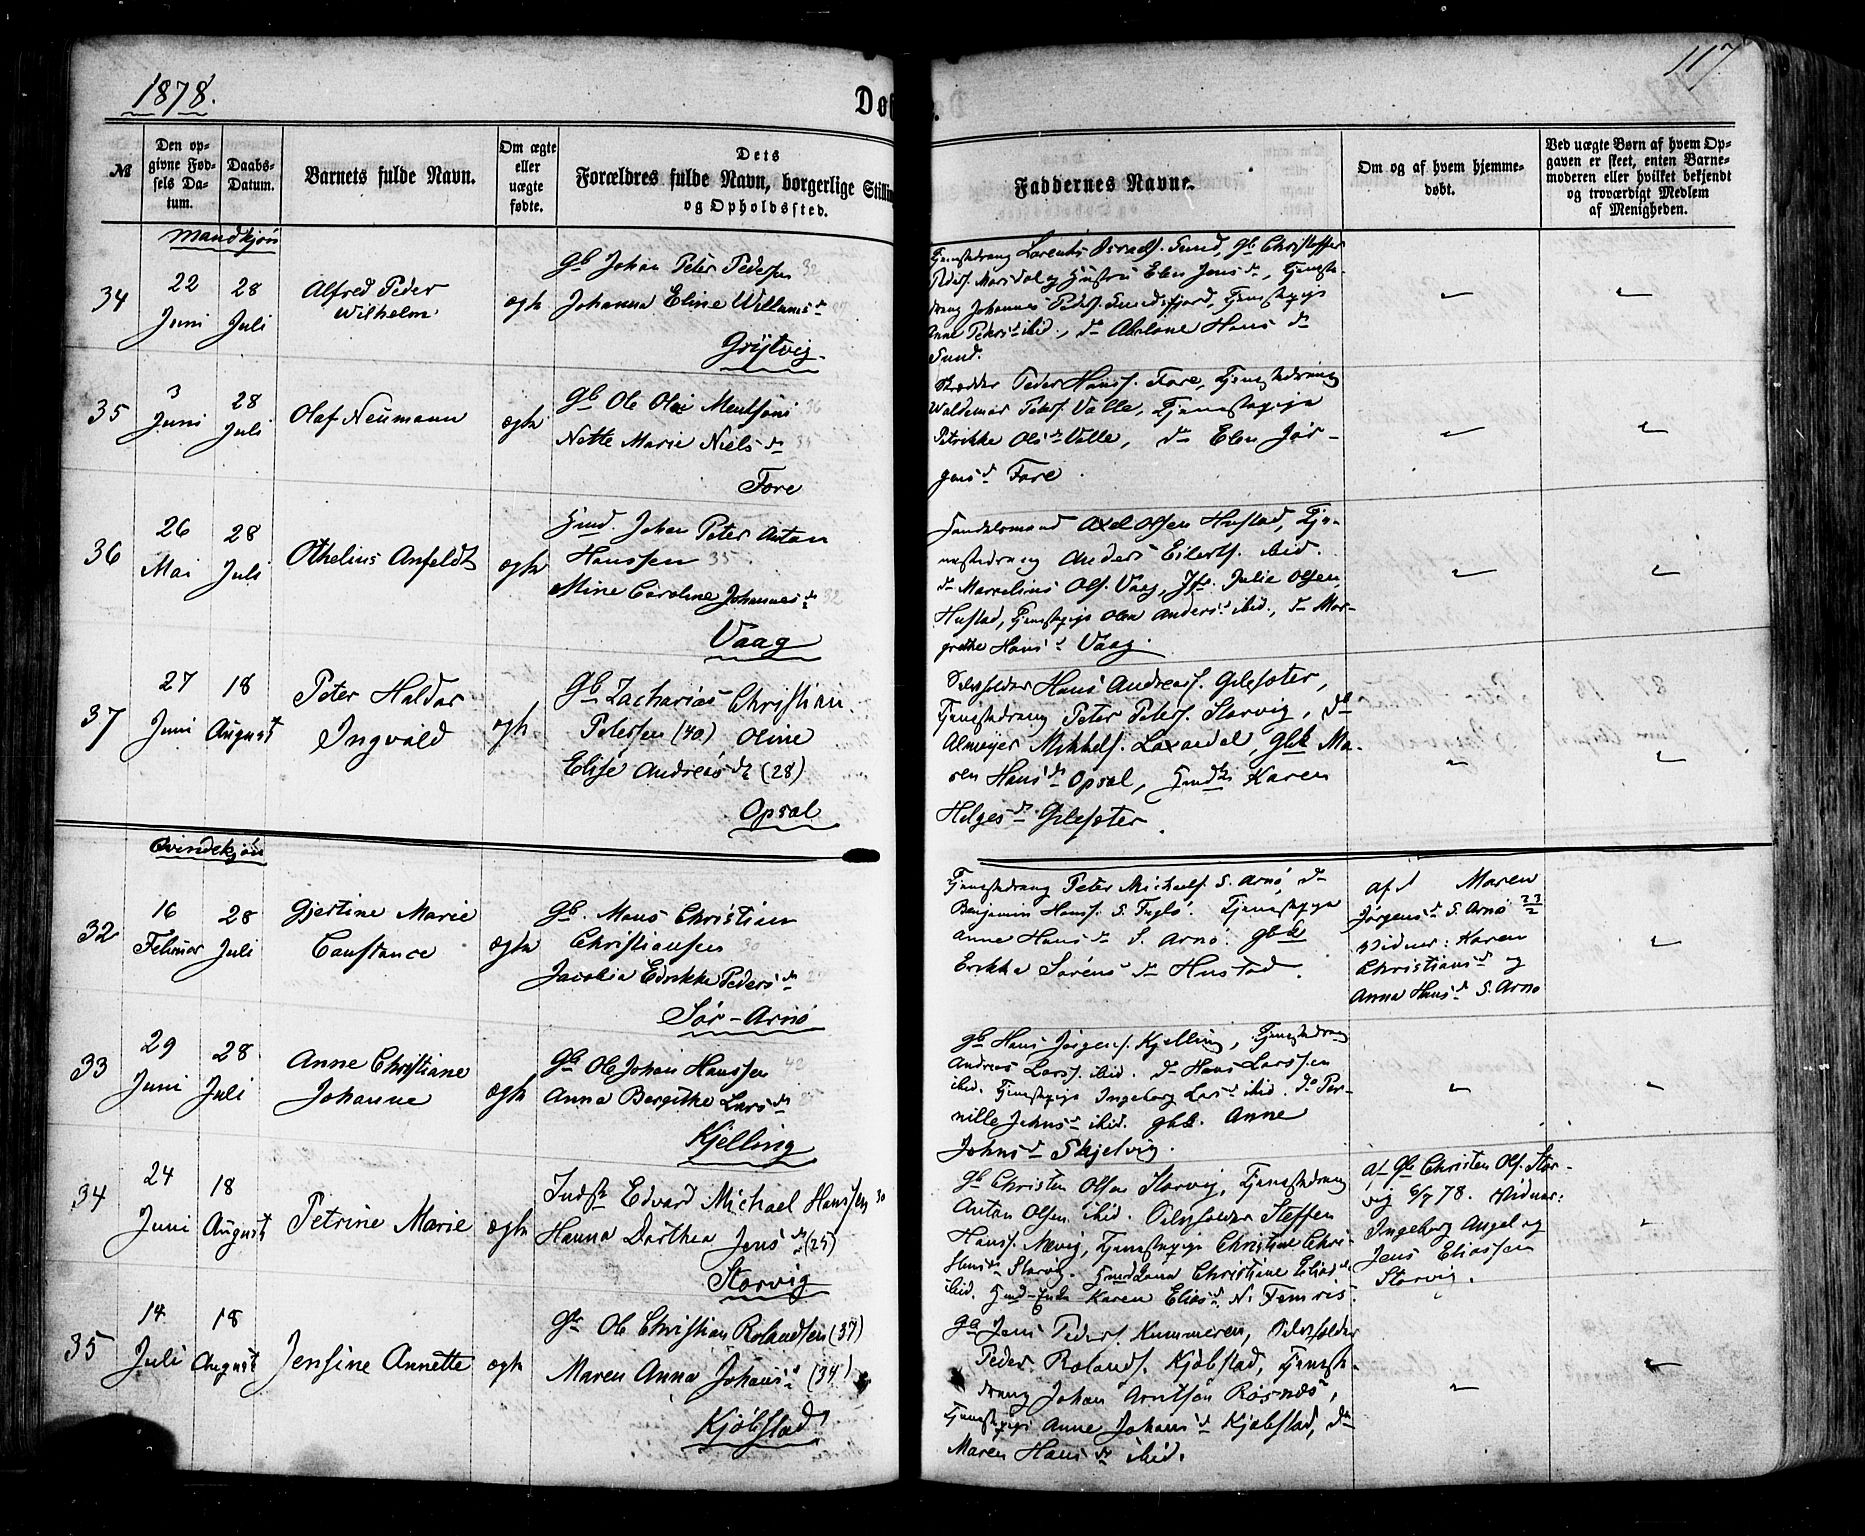 1878.
117
Døb
№
Den op-
givne Fød-
sels Da-
tum.
Daabs-
Datum.
Barnets fulde Navn.
Om ægte
eller
uægte
fødte.
Dets
Forældres fulde Navn, borgerlige Stillin
og Opholdssted.
Faddernes Navne.
Om og af hvem hjemme-
døbt.
Ved uægte Børn af hvem Op-
gaven er skeet, enten Barne-
moderen eller hvilket bekjendt
og troværdigt Medlem
af Menigheden.
Mandkjøn
34
22
Juni
28
Juli
Alfred Peder
Wilhelm
ægte
Gb Johan Peter Pedersen 32
Johanna Eline Willumsd
Grytvig
Tjenestedrang Lorents Israels. Sund, Gb Christoffer
Peders. Marsdal og Hustru Elen Jensd., Tjeneste-
drang Johannes Peders. Sundsfjord, Tjenestepige
Anne Pedersd ibid., do Abelone Hansd
Sund.
35
3
Juni
28
Juli
Olaf Neumann
ægte
Gb Ole Olai Mentsen 36
Nette Marie Nielsd
Fore
Skrædder Peder Hans. Fore, Tjenestedrang
Waldemar Peters. Valle, Tjenestepige
Petrikke Olsd Valle, do Elen Jør-
gensd Fore.
36
26
Mai
28
Juli
Othelius Anfeldt
ægte
Gmd. Johan Peter Anton
Hanssen 35
Mine Caroline Johannesd 32
Vaag
Handelsmand Axel Olsen Hustad, Tje-
nestedrang Anders Eilerts. ibid.
do Marselius Ols. Vaag, Jfr. Julie Olsen
Hustad, Tjenestepige Olea Andersd ibid., do Mar-
grethe Hansd Vaag
37
27
Juni
18
August
Peter Haldar
Ingvald
ægte
Gb Zacharias Christian
Petersen (40) Oline
Elise Andreasd (28)
Opsal
Selvholder Hans Andreas. Gilesæter,
Tjenestedrang Peter Peters. Storvig, do
Almeyer Mikkels. Laxaadal, Gbk Ma-
ren Hansd Opsal, Gmdk Karen
Helgesd Gilesæter.
Qvindekjøn
32
16
Februar
28
Juli
Gjertine Marie
Constance
ægte
Gb. Mons Christian
Christiansen 30
Jacobia Edrikke Pedersd
Sør-Arnø
Tjenestedrang Peter Michaels. S. Arnø, do
Benjamin Hans. S. Fuglø. Tjenestepige
Anne Hansd S. Arnø. Gbk
Erikka Sørensd Hustad.
af Maren
Jørgensd S. Arnø 23/2
Vidner: Karen
Christiansd og
Anna Hansd S. Arnø
33
29
Juni
28
Juli
Anne Christiane
Johanne
ægte
Gb Ole Johan Hanssen 42
Anna Bergitha Larsd
Kjelling
Gb Hans Jørgens. Kjelling, Tjenestedrang
Andreas Lars. ibid. do Hans Larssen
ibid. Tjenestepige Ingeborg Larsd ibid. do Per-
nille Johnsd ibid. Gbk. Anne
Johnsd Skjelvig.
34
24
Juni
18
August
Petrine Marie
ægte
Indst Edvard Michael Hanssen 30
Hanna Dorthea Jensd (25)
Storvig
Gb Christen Olsen Storvig, Tjenestedrang
Anton Olsen ibid. Selvholder Steffen
Hans. Nævig, Tjenestepige Christine Chri-
stensd Storvig. Gmdkona Christiane Eliasd
ibid. Gmd-Enke Karen Eliasd N. Femris.
af Gb Christen Ols. Stor-
vig 6/7 78. Vidner:
Ingeborg Angel og
Jens Eliassen
Storvig.
35
14
Juli
18
August
Jensine Annette
ægte
Gb Ole Christian Rolandsen (37)
Maren Anna Johansd (34)
Kjøbstad
Gb Jens Peders. Nummeren, Selvholder
Peder Rolands. Kjøbstad, Tjeneste-
drang Johan Arntsen Røsnæs,
Tjenestepige Anne Johansd Kjøbstad, do
Maren Hansd ibid.